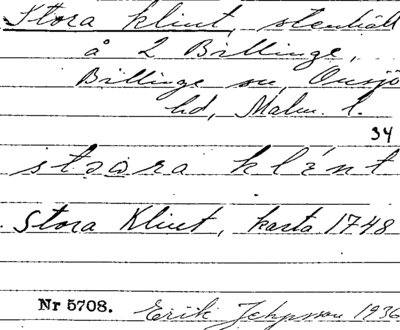 Stora klint, stenhäll
å 2 Billinge,
Billinge sn, Onsjö
hd, Malm. l.
34
stɷara klént
Stora Klint, karta 1748
Nr 5708. Erik Jeppsson 1936